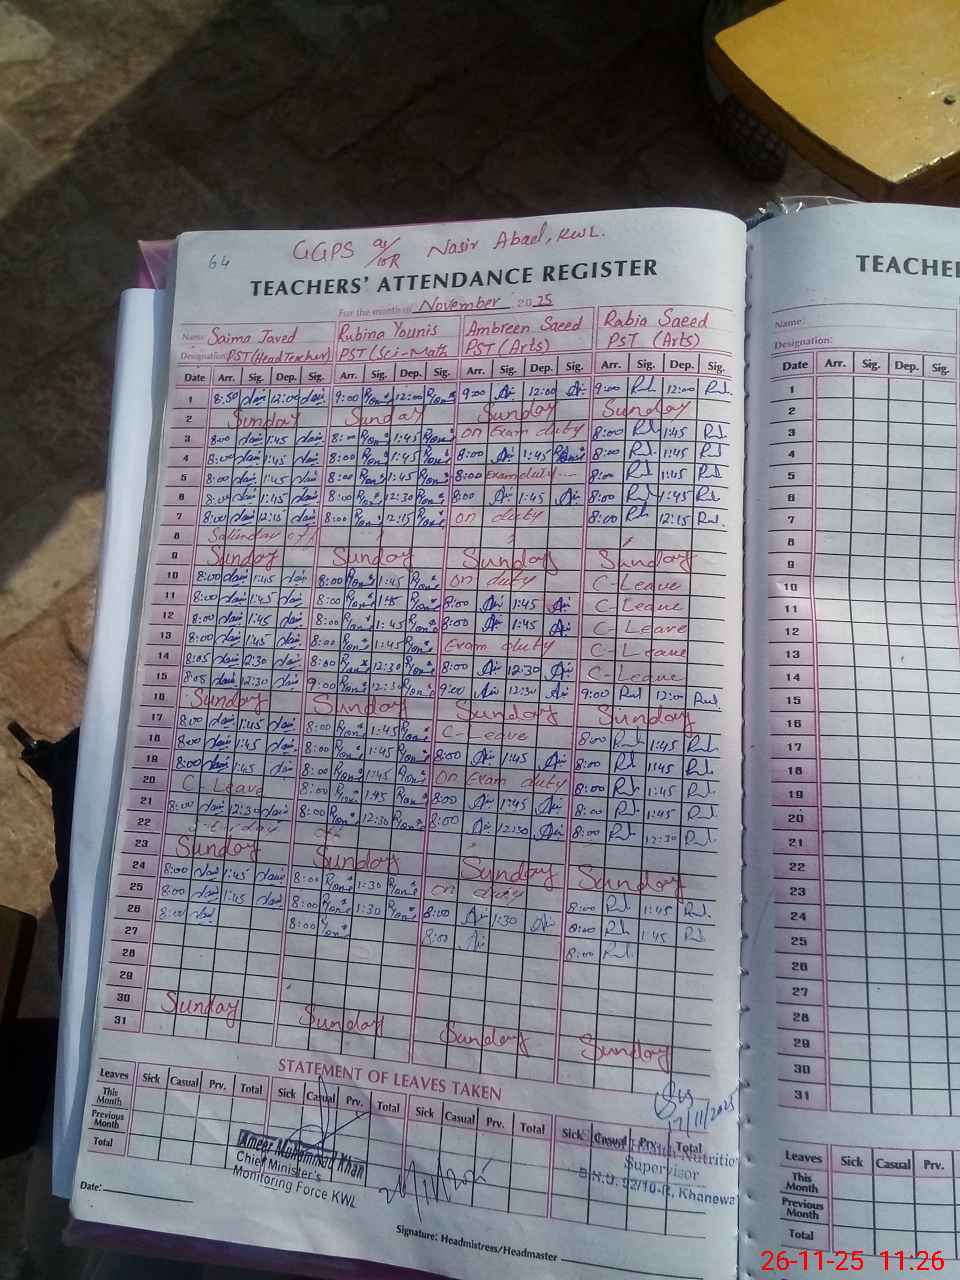 64
GGPS 91/10R Nasir Abad, KWL.
TEACHERS' ATTENDANCE REGISTER
For the month of November 2025
Name: Saima Javed Rubina Younis Ambreen Saeed Rabia Saeed
Designation: PST (Head Teacher) PST (Sci-Math PST (Arts) PST (Arts)
Date Arr. Sig. Dep. Sig. Arr. Sig. Dep. Sig. Arr. Sig. Dep. Sig. Arr. Sig. Dep. Sig.
1 8:50 12:00 9:00 12:00 9:00 12:00 9:00 12:00
2 Sunday Sunday Sunday Sunday
3 8:00 1:45 8:00 1:45 on Exam duty 8:00 1:45
4 8:00 1:45 8:00 1:45 8:00 1:45 8:00 1:45
5 8:00 1:45 8:00 1:45 8:00 Exam duty 8:00 1:45
6 8:00 1:45 8:00 12:30 8:00 1:45 8:00 1:45
7 8:00 12:15 8:00 12:15 on duty 8:00 12:15
8 Saturday off
9 Sunday Sunday Sunday Sunday
10 8:00 1:45 8:00 1:45 on duty C-Leave
11 8:00 1:45 8:00 1:45 8:00 1:45 C-Leave
12 8:00 1:45 8:00 1:45 8:00 1:45 C-Leave
13 8:00 1:45 8:00 1:45 Exam duty C-Leave
14 8:05 12:30 8:00 12:30 8:00 12:30 C-Leave
15 8:05 12:30 9:00 12:30 9:00 12:30 9:00 12:00
16 Sunday Sunday Sunday Sunday
17 8:00 1:45 8:00 1:45 C-Leave 8:00 1:45
18 8:00 1:45 8:00 1:45 8:00 1:45 8:00 1:45
19 8:00 1:45 8:00 1:45 on Exam duty 8:00 1:45
20 C-Leave 8:00 1:45 8:00 1:45 8:00 1:45
21 8:00 12:30 8:00 12:30 8:00 12:30 8:00 12:30
22
23 Sunday Sunday Sunday Sunday
24 8:00 1:45 8:00 1:30 on duty 8:00 1:45
25 8:00 1:45 8:00 1:30 8:00 1:30 8:00 1:45
26 8:00 8:00 8:00 8:00
27
28
29
30 Sunday Sunday Sunday Sunday
31
STATEMENT OF LEAVES TAKEN
17/11/2025
Leaves Sick Casual Prv. Total Sick Casual Prv. Total Sick Casual Prv. Total Sick Casual Prv. Total
This Month
Previous Month
Total
Ameer Muhammad Khan
Chief Minister's
Monitoring Force KWL
Supervisor
B.H.U. 92/10-R, Khanewa
Date:
Signature: Headmistress/Headmaster
TEACHE
Name:
Designation:
Date Arr. Sig. Dep. Sig.
1
2
3
4
5
6
7
8
9
10
11
12
13
14
15
16
17
18
19
20
21
22
23
24
25
26
27
28
29
30
31
Leaves Sick Casual Prv.
This Month
Previous Month
Total
26-11-25 11:26